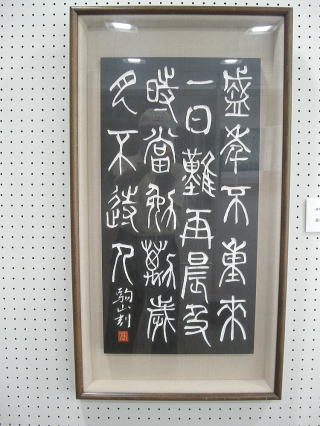 盛年不重來
一日難再晨及
時當勉勵歲
月不待人
駒山刻